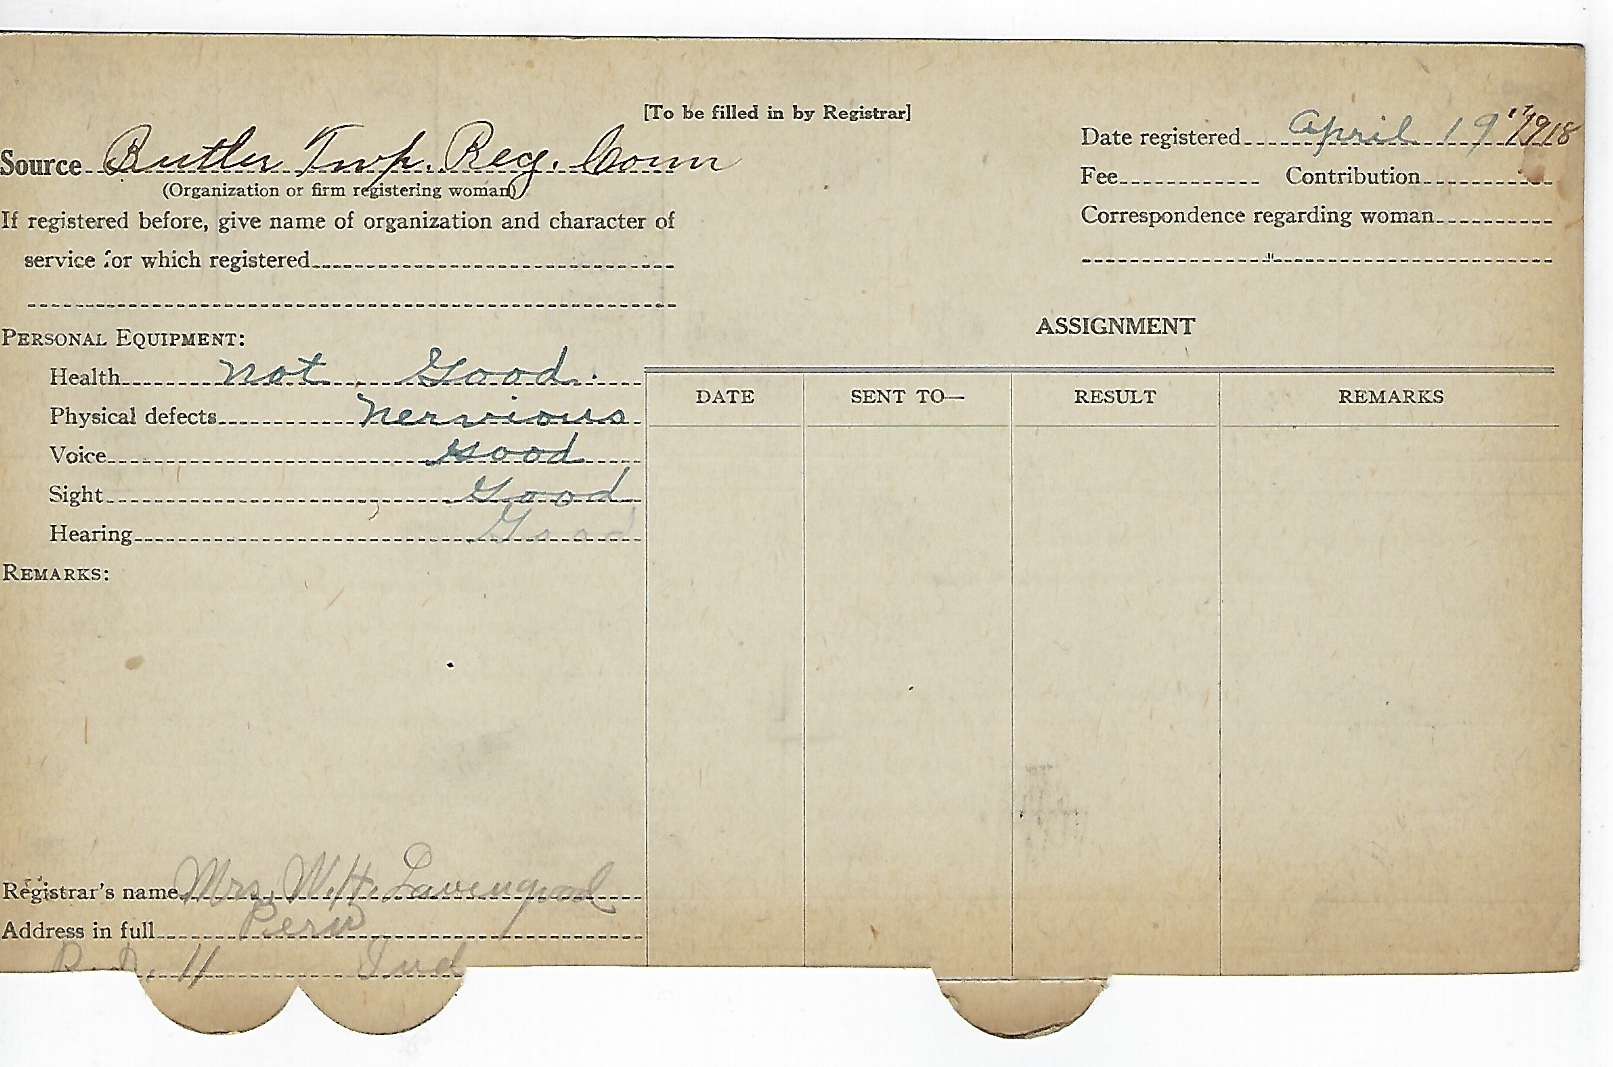 [To be filled in by Registrar]
Source Butler Twp. Reg. Comm
(Organization or firm registering woman)
If registered before, give name of organization and character of
service for which registered
Date registered April 19 1918
Fee Contribution
Correspondence regarding woman
PERSONAL EQUIPMENT:
Health Not Good.
Physical defects Nervious
Voice Good
Sight Good
Hearing Good
REMARKS:
ASSIGNMENT
DATE SENT TO— RESULT REMARKS
Registrar's name Mrs. W. H. Lavengood
Address in full Peru
R. R. 11 Ind